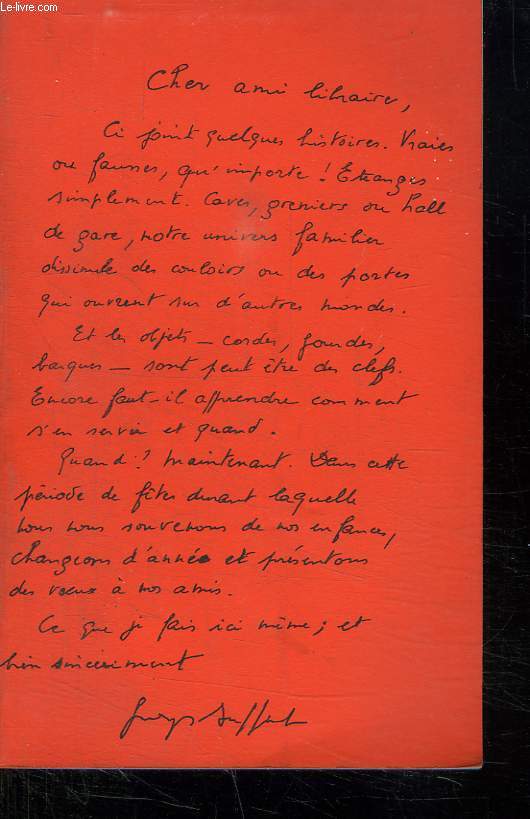 Le-livre.com
Cher ami libraire,
Ci joint quelques histoires. Vraies
ou fausses, qu'importe ! Etranges
simplement. Caves, greniers ou hall
de gare, notre univers familier
dissimule des couloirs ou des portes
qui ouvrent sur d'autres mondes.
Et les objets — cordes, gourdes,
barques — sont peut être des clefs.
Encore faut-il apprendre comment
s'en servir et quand.
Quand ? Maintenant. Dans cette
période de fêtes durant laquelle
nous nous souvenons de nos enfances,
changeons d'année et présentons
des vœux à nos amis.
Ce que je fais ici même ; et
bien sincèrement